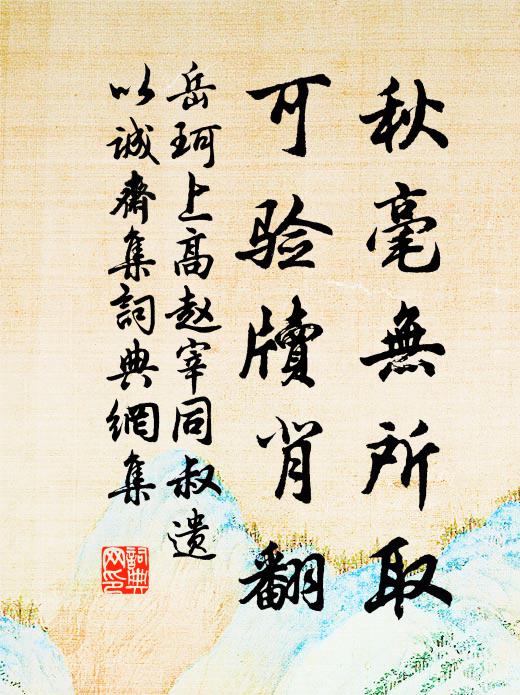 秋毫無所取
可验牍背翻
岳珂上高赵宰同叔遗
以诚斋集詞典網集
詞典
网印